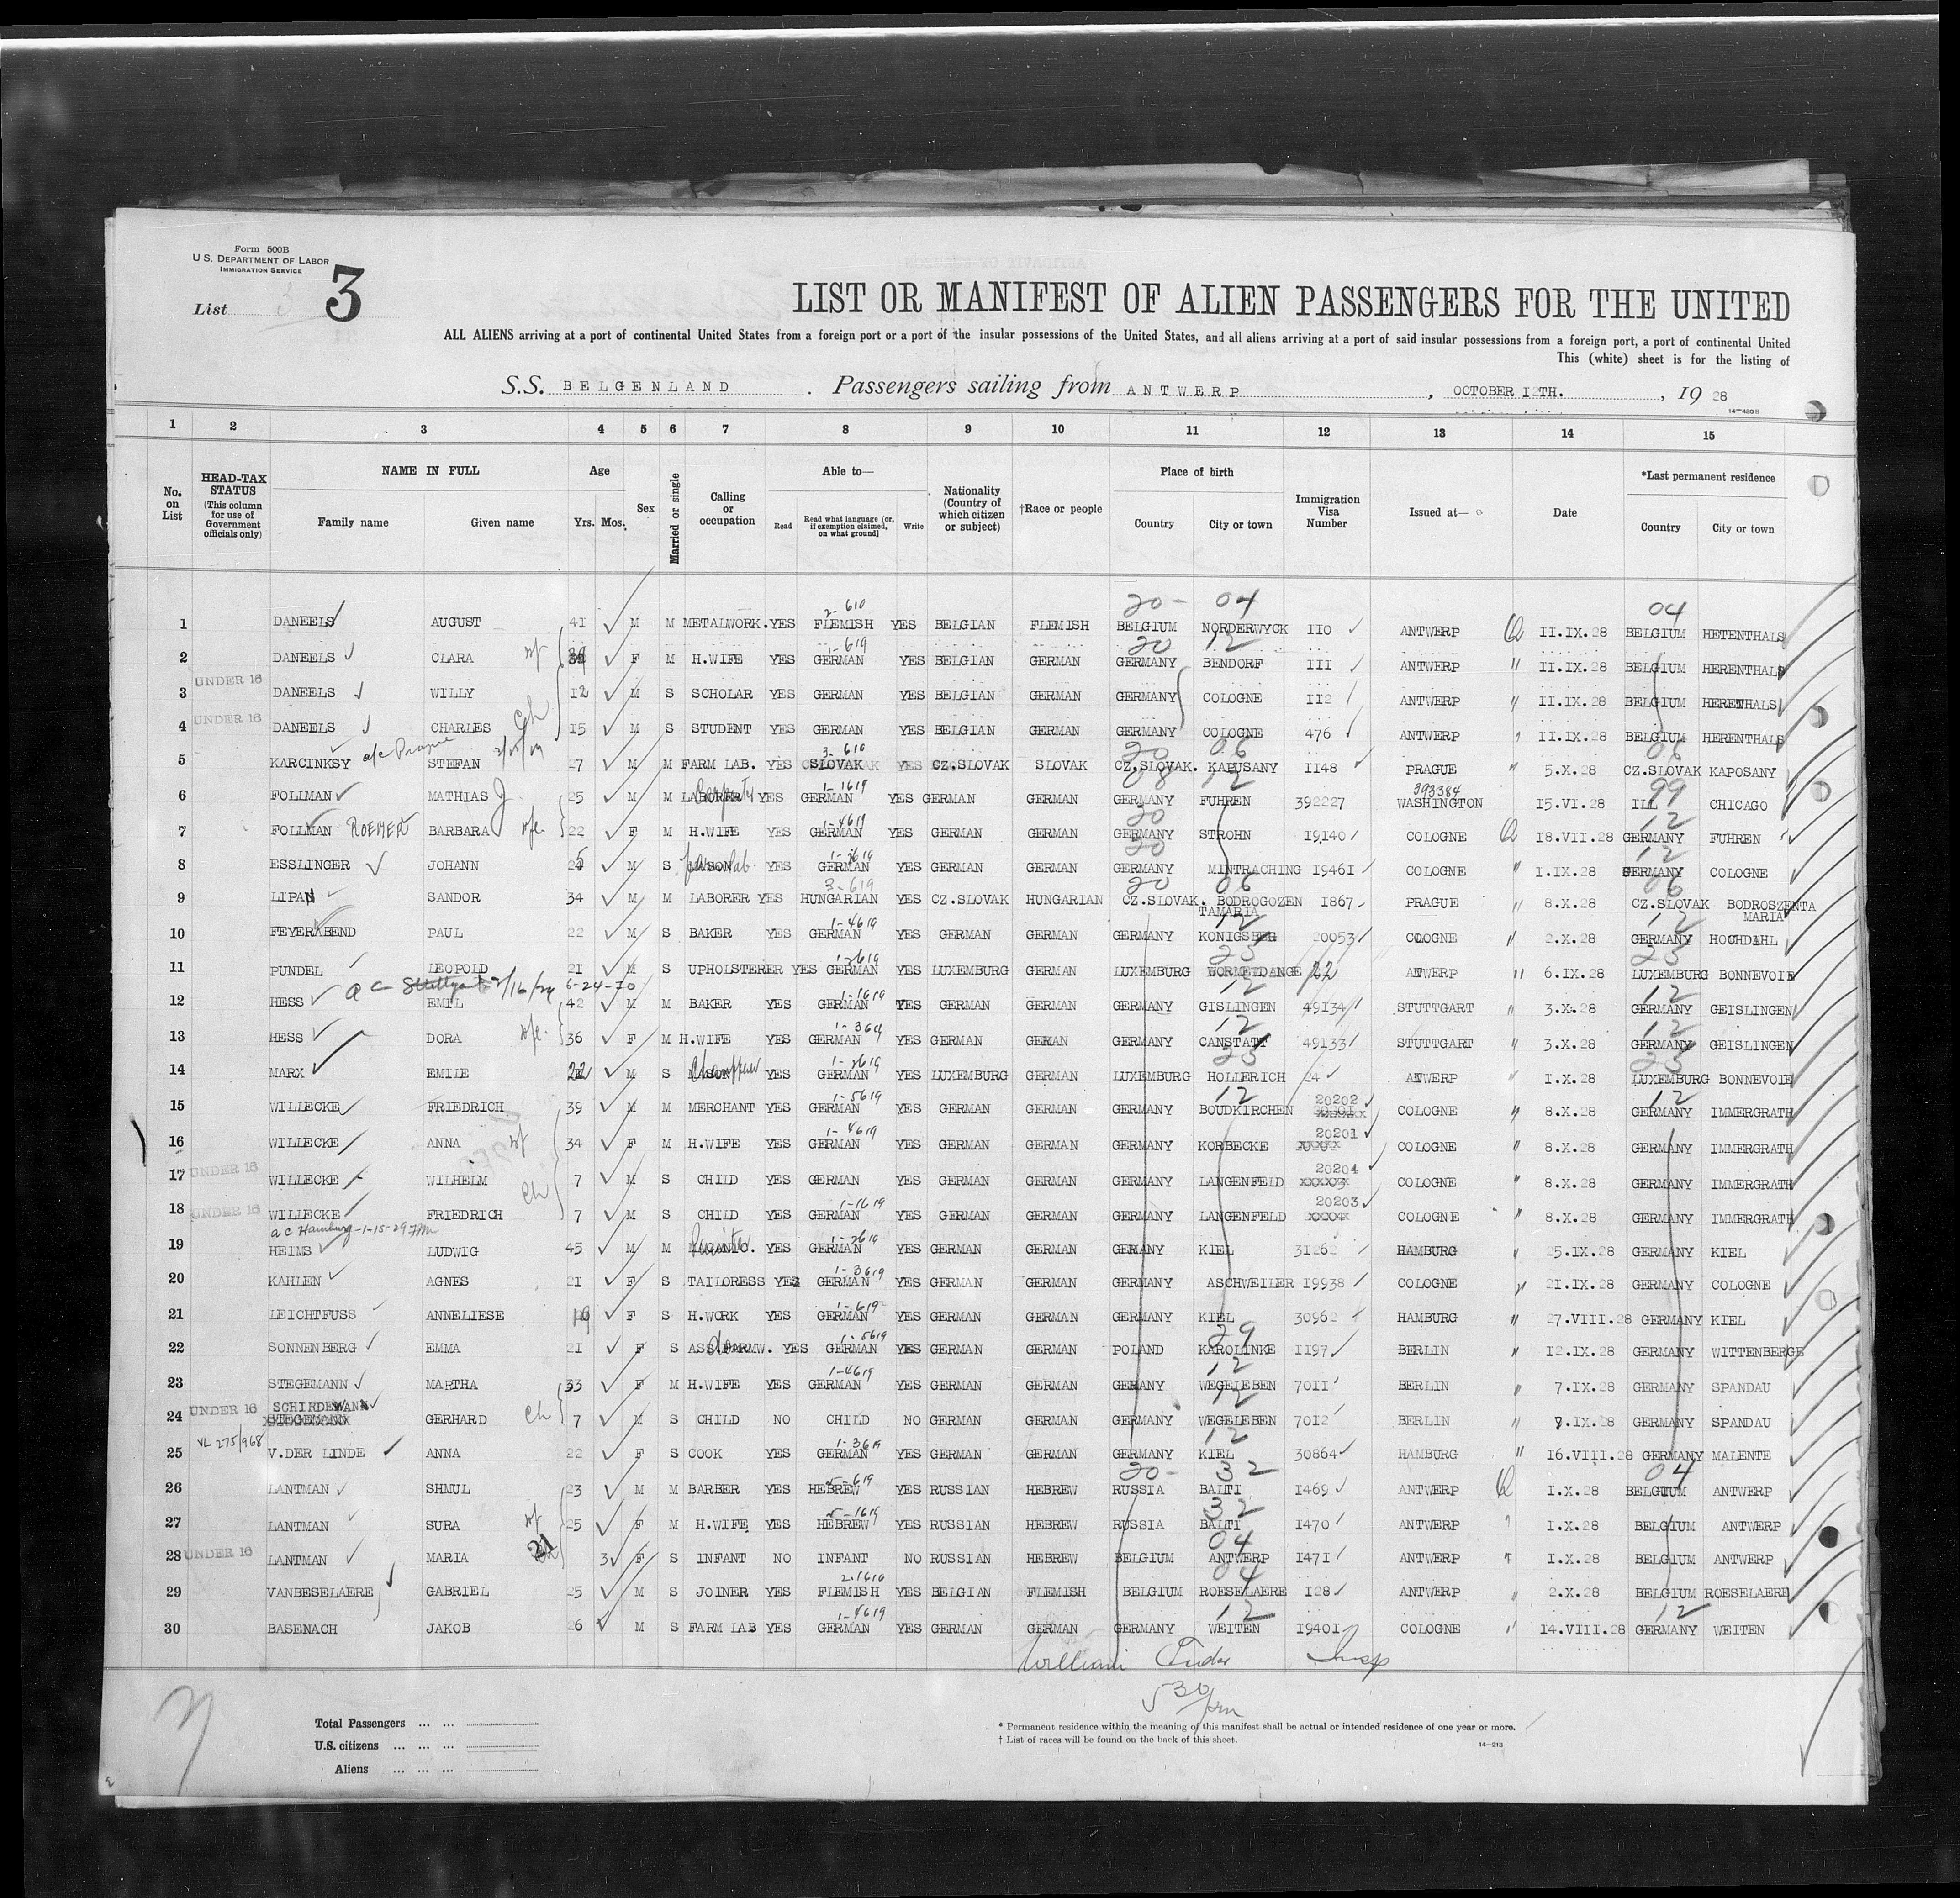 Form 500B
U. S. DEPARTMENT OF LABOR
IMMIGRATION SERVICE
List 3 3
LIST OR MANIFEST OF ALIEN PASSENGERS FOR THE UNITED
ALL ALIENS arriving at a port of continental United States from a foreign port or a port of the insular possessions of the United States, and all aliens arriving at a port of said insular possessions from a foreign port, a port of continental United
This (white) sheet is for the listing of
S.S. BELGENLAND. Passengers sailing from ANTWERP, OCTOBER I2TH., 1928
14—480B
1 2 3 4 5 6 7 8 9 10 11 12 13 14 15
No. on List
HEAD-TAX STATUS (This column for use of Government officials only)
NAME IN FULL Family name Given name
Age Yrs. Mos.
Sex
Married or single
Calling or occupation
Able to— Read Read what language [or, if exemption claimed, on what ground] Write
Nationality (Country of which citizen or subject)
†Race or people
Place of birth Country City or town
Immigration Visa Number
Issued at—
Date
*Last permanent residence Country City or town
2- 610 20- 04 04
1 DANEELS AUGUST 4I M M METALWORK. YES FLEMISH YES BELGIAN FLEMISH BELGIUM NORDERWYCK IIO ANTWERP II.IX.28 BELGIUM HETENTHALS
1-619 20 12
2 DANEELS CLARA wf F M H.WIFE YES GERMAN YES BELGIAN GERMAN GERMANY BENDORF III ANTWERP " II.IX.28 BELGIUM HERENTHALS
UNDER 16
3 DANEELS WILLY I2 M S SCHOLAR YES GERMAN YES BELGIAN GERMAN GERMANY COLOGNE II2 ANTWERP " II.IX.28 BELGIUM HERENTHALS
UNDER 16
4 DANEELS CHARLES Ch I5 M S STUDENT YES GERMAN YES BELGIAN GERMAN GERMANY COLOGNE 476 ANTWERP " II.IX.28 BELGIUM HERENTHALS
a/c Prague 3- 610 20 06 06
5 KARCINKSY STEFAN 27 M M FARM LAB. YES SLOVAK YES CZ.SLOVAK SLOVAK CZ.SLOVAK. KAPUSANY II48 PRAGUE " 5.X.28 CZ.SLOVAK KAPOSANY
1-1619 08 12 393384 99
6 FOLLMAN MATHIAS J. 25 M M LABORER YES GERMAN YES GERMAN GERMAN GERMANY FUHREN 392227 WASHINGTON I5.VI.28 ILL CHICAGO
1-4619 20 12
7 FOLLMAN ROEMER BARBARA wfe. 22 F M H.WIFE YES GERMAN YES GERMAN GERMAN GERMANY STROHN I9I40 COLOGNE I8.VII.28 GERMANY FUHREN
20 12
8 ESSLINGER JOHANN M S YES GERMAN YES GERMAN GERMAN GERMANY MINTRACHING I946I COLOGNE " I.IX.28 GERMANY COLOGNE
3-619 20 06 06
9 LIPAN SANDOR 34 M M LABORER YES HUNGARIAN YES CZ.SLOVAK HUNGARIAN CZ.SLOVAK. BODROGOZEN TAMARIA I867 PRAGUE " 8.X.28 CZ.SLOVAK BODROSZENTA MARIA
1-4619 12 12
10 FEYERABEND PAUL 22 M S BAKER YES GERMAN YES GERMAN GERMAN GERMANY KONIGSBEG 20053 COLOGNE " 2.X.28 GERMANY HOCHDAHL
1-2619 25 25
11 PUNDEL LEOPOLD 2I M S UPHOLSTERER YES GERMAN YES LUXEMBURG GERMAN LUXEMBURG WORMELDANGE 22 ANTWERP " 6.IX.28 LUXEMBURG BONNEVOIE
a c Stuttgart 2/16/29 6-24-70 1-1619 12 12
12 HESS EMIL 42 M M BAKER YES GERMAN YES GERMAN GERMAN GERMANY GISLINGEN 49I34 STUTTGART " 3.X.28 GERMANY GEISLINGEN
1-3619 12 12
13 HESS DORA wfe. 36 F M H.WIFE YES GERMAN YES GERMAN GERMAN GERMANY CANSTATT 49I33 STUTTGART " 3.X.28 GERMANY GEISLINGEN
1-2619 25 25
14 MARX EMILE 22 M S Chauffeur YES GERMAN YES LUXEMBURG GERMAN LUXEMBURG HOLLERICH 24 ANTWERP " I.X.28 LUXEMBURG BONNEVOIE
1-5619 12 12
15 WILLECKE FRIEDRICH 39 M M MERCHANT YES GERMAN YES GERMAN GERMAN GERMANY BOUDKIRCHEN 20202 COLOGNE " 8.X.28 GERMANY IMMERGRATH
1-4619
16 WILLECKE ANNA wf 34 F M H.WIFE YES GERMAN YES GERMAN GERMAN GERMANY KORBECKE 20201 COLOGNE " 8.X.28 GERMANY IMMERGRATH
UNDER 16
17 WILLECKE WILHELM Ch 7 M S CHILD YES GERMAN YES GERMAN GERMAN GERMANY LANGENFELD 20204 COLOGNE " 8.X.28 GERMANY IMMERGRATH
UNDER 16 1-1619
18 WILLECKE FRIEDRICH 7 M S CHILD YES GERMAN YES GERMAN GERMAN GERMANY LANGENFELD 20203 COLOGNE " 8.X.28 GERMANY IMMERGRATH
a c Hamburg-1-15-29 1-2619
19 HEIMS LUDWIG 45 M M YES GERMAN YES GERMAN GERMAN GERMANY KIEL 3I262 HAMBURG " 25.IX.28 GERMANY KIEL
1-3619
20 KAHLEN AGNES 2I F S TAILORESS YES GERMAN YES GERMAN GERMAN GERMANY ASCHWEILER I9938 COLOGNE " 2I.IX.28 GERMANY COLOGNE
1-619
21 LEICHTFUSS ANNELIESE 19 F S H.WORK YES GERMAN YES GERMAN GERMAN GERMANY KIEL 30962 HAMBURG " 27.VIII.28 GERMANY KIEL
1-5619 29
22 SONNENBERG EMMA 2I F S YES GERMAN YES GERMAN GERMAN POLAND KAROLINKE II97 BERLIN " I2.IX.28 GERMANY WITTENBERGE
1-4619 12
23 STEGEMANN MARTHA 33 F M H.WIFE YES GERMAN YES GERMAN GERMAN GERMANY WEGELEBEN 70II BERLIN " 7.IX.28 GERMANY SPANDAU
UNDER 16 SCHIDEWAN 12
24 STEGEMANN GERHARD Ch 7 M S CHILD NO CHILD NO GERMAN GERMAN GERMANY WEGELEBEN 70I2 BERLIN " 7.IX.28 GERMANY SPANDAU
VL 275/968 1-3619 12
25 V.DER LINDE ANNA 22 F S COOK YES GERMAN YES GERMAN GERMAN GERMANY KIEL 30864 HAMBURG " I6.VIII.28 GERMANY MALENTE
5-619 20- 32 04
26 LANTMAN SHMUL 23 M M BARBER YES HEBREW YES RUSSIAN HEBREW RUSSIA BALTI I469 ANTWERP I.X.28 BELGIUM ANTWERP
5-1619 32
27 LANTMAN SURA wf 25 F M H.WIFE YES HEBREW YES RUSSIAN HEBREW RUSSIA BALTI I470 ANTWERP " I.X.28 BELGIUM ANTWERP
UNDER 16 21 04
28 LANTMAN MARIA 3 F S INFANT NO INFANT NO RUSSIAN HEBREW BELGIUM ANTWERP I47I ANTWERP " I.X.28 BELGIUM ANTWERP
2.1610 04
29 VANBESELAERE GABRIEL 25 M S JOINER YES FLEMISH YES BELGIAN FLEMISH BELGIUM ROESELAERE I28 ANTWERP " 2.X.28 BELGIUM ROESELAERE
1-4619 12 12
30 BASENACH JAKOB 26 M S FARM LAB YES GERMAN YES GERMAN GERMAN GERMANY WEITEN I940I COLOGNE " I4.VIII.28 GERMANY WEITEN
William Insp
5 30 pm
Total Passengers ... ...
U.S. citizens ... ... ...
Aliens ... ... ...
* Permanent residence within the meaning of this manifest shall be actual or intended residence of one year or more.
† List of races will be found on the back of this sheet.
14—213